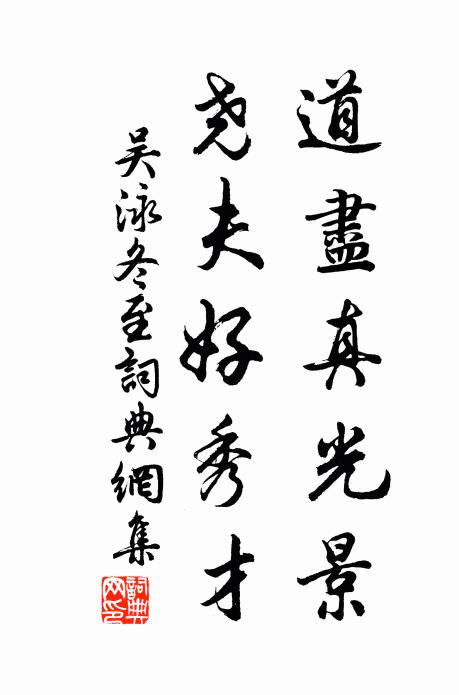 道盡真光景
尧夫好秀才
吴泳冬至詞典網集
詞典网印